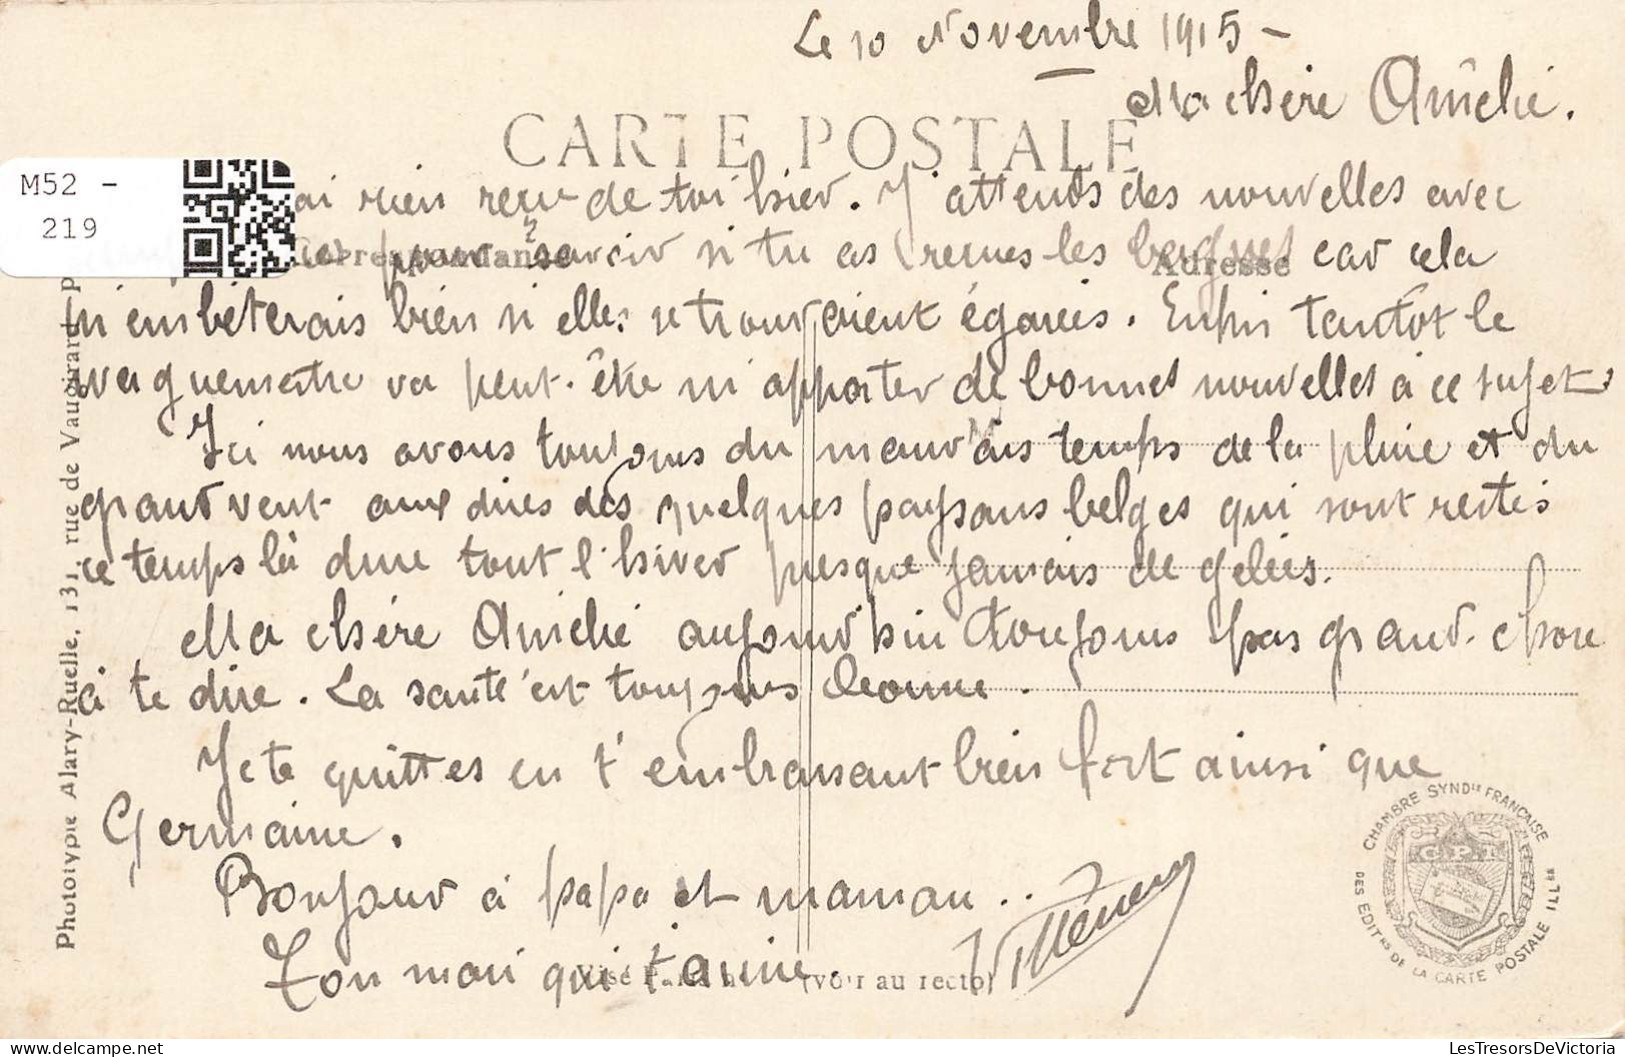 Le 10 Novembre 1915 -
Ma chère Amélie.
CARTE POSTALE
M52 -
219
ai rien reçu de toi hier. J'attends des nouvelles avec
Correspondance
Adresse
pour savoir si tu as reçues les bagues car cela
m'embèterais bien si elles se trouvraient égarées. Enfin tantôt le
vaguemestre va peut-être m'apporter de bonnes nouvelles à ce sujet
Ici nous avons toujours du mauvais temps de la pluie et du
grand vent aux dires des quelques paysans belges qui sont restés
ce temps là dure tout l'hiver presque jamais de gelées.
Ma chère Amélie aujourd'hui toujours pas grand-chose
à te dire. La santé est toujours bonne.
Je te quittes en t'embrassant bien fort ainsi que
Germaine.
Bonjour à papa et maman..
Ton mari qui t'aime.
Villeneuve
Visé Paris n° (voir au recto)
Phototypie Alary-Ruelle, 131, rue de Vaugirard, P
CHAMBRE SYND.le FRANÇAISE
DES EDIT.rs DE LA CARTE POSTALE ILL.ée
C.P.I.
LesTresorsDeVictoria.com